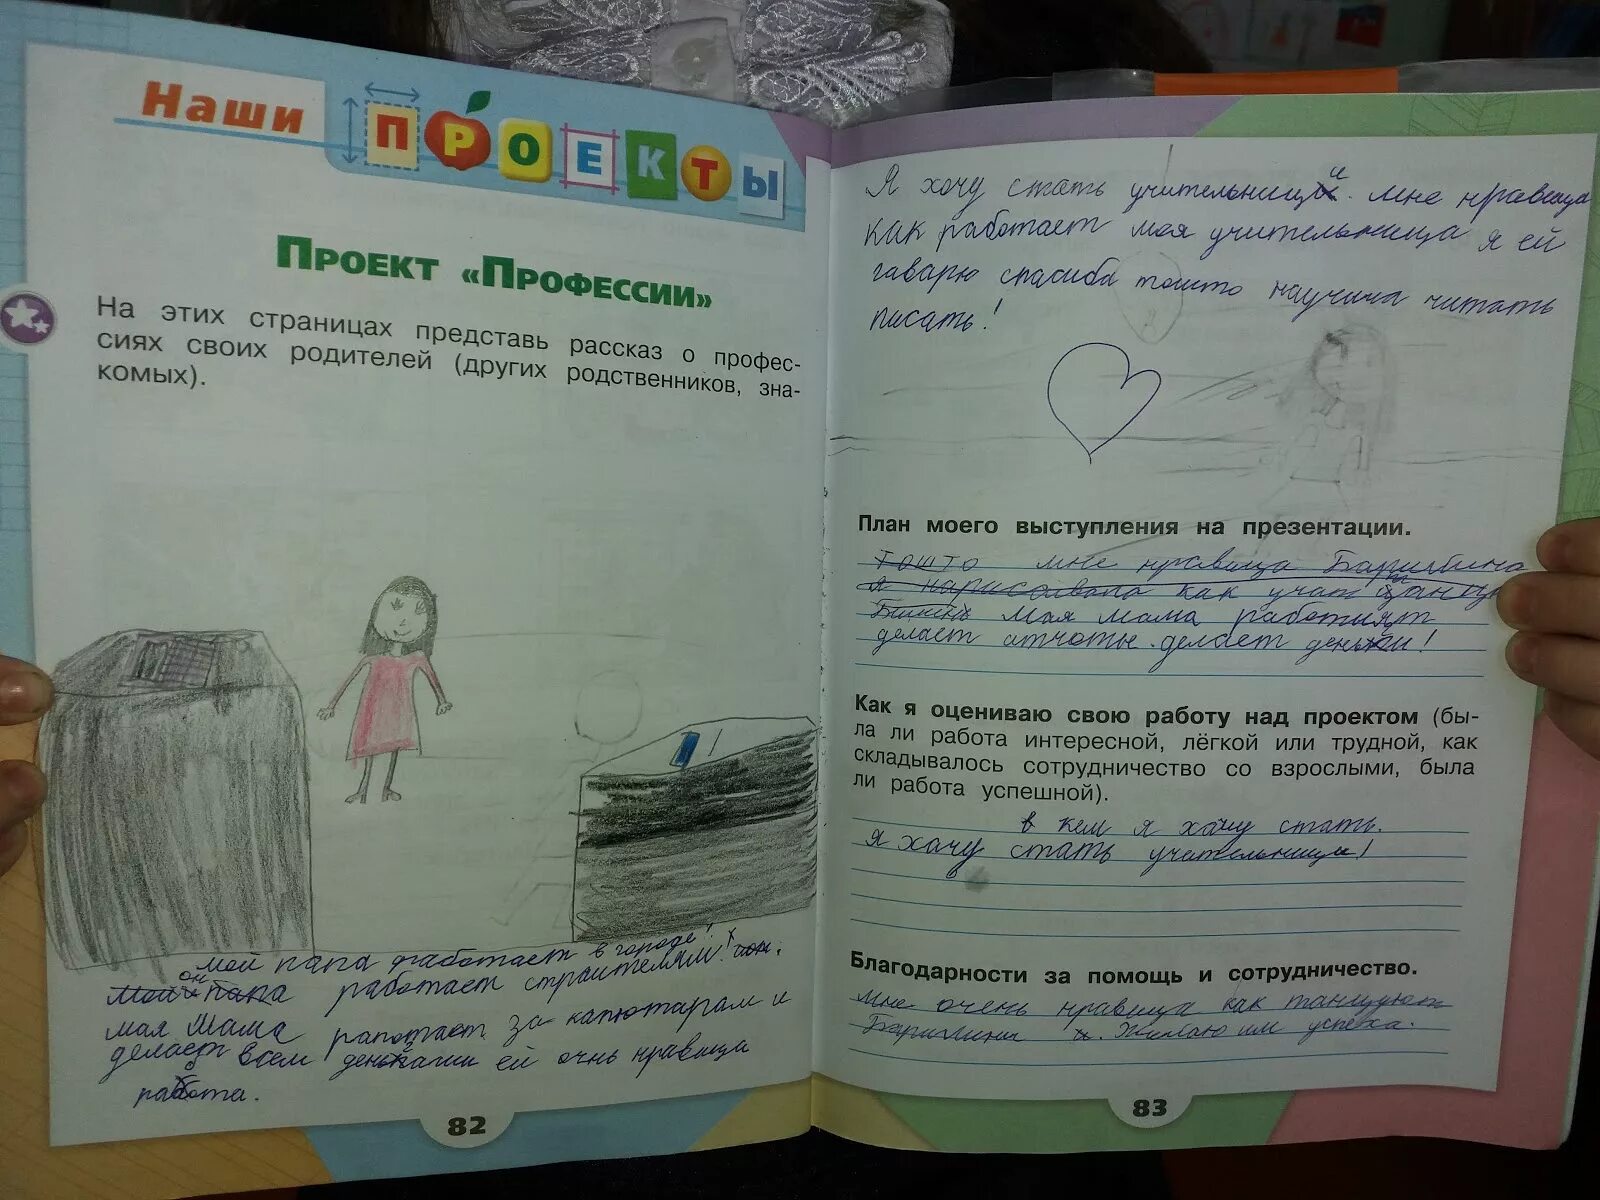 Наши ПРОЕКТЫ
Проект «Профессии»
На этих страницах представь рассказ о профес-
сиях своих родителей (других родственников, зна-
комых).
мой папа работает в городе!
он
Мой папа работает страителям!
мая Мама рапотает за капютарам и
делает всем деньгами ей очнь нравица
работа.
82
Я хочу стать учительницы. мне нравица
как работает моя учительница я ей
гаварю спасиба тошто научила читать
писать!
План моего выступления на презентации.
Тошто мне нравица
я нарисавала как учат
мая мама работият
делает отчоты. делает деньги!
Как я оцениваю свою работу над проектом (бы-
ла ли работа интересной, лёгкой или трудной, как
складывалось сотрудничество со взрослыми, была
ли работа успешной).
в кем я хачу стать.
я хачу стать учительницы!
Благодарности за помощь и сотрудничество.
мне очень нравица как танцуют
им успеха.
83